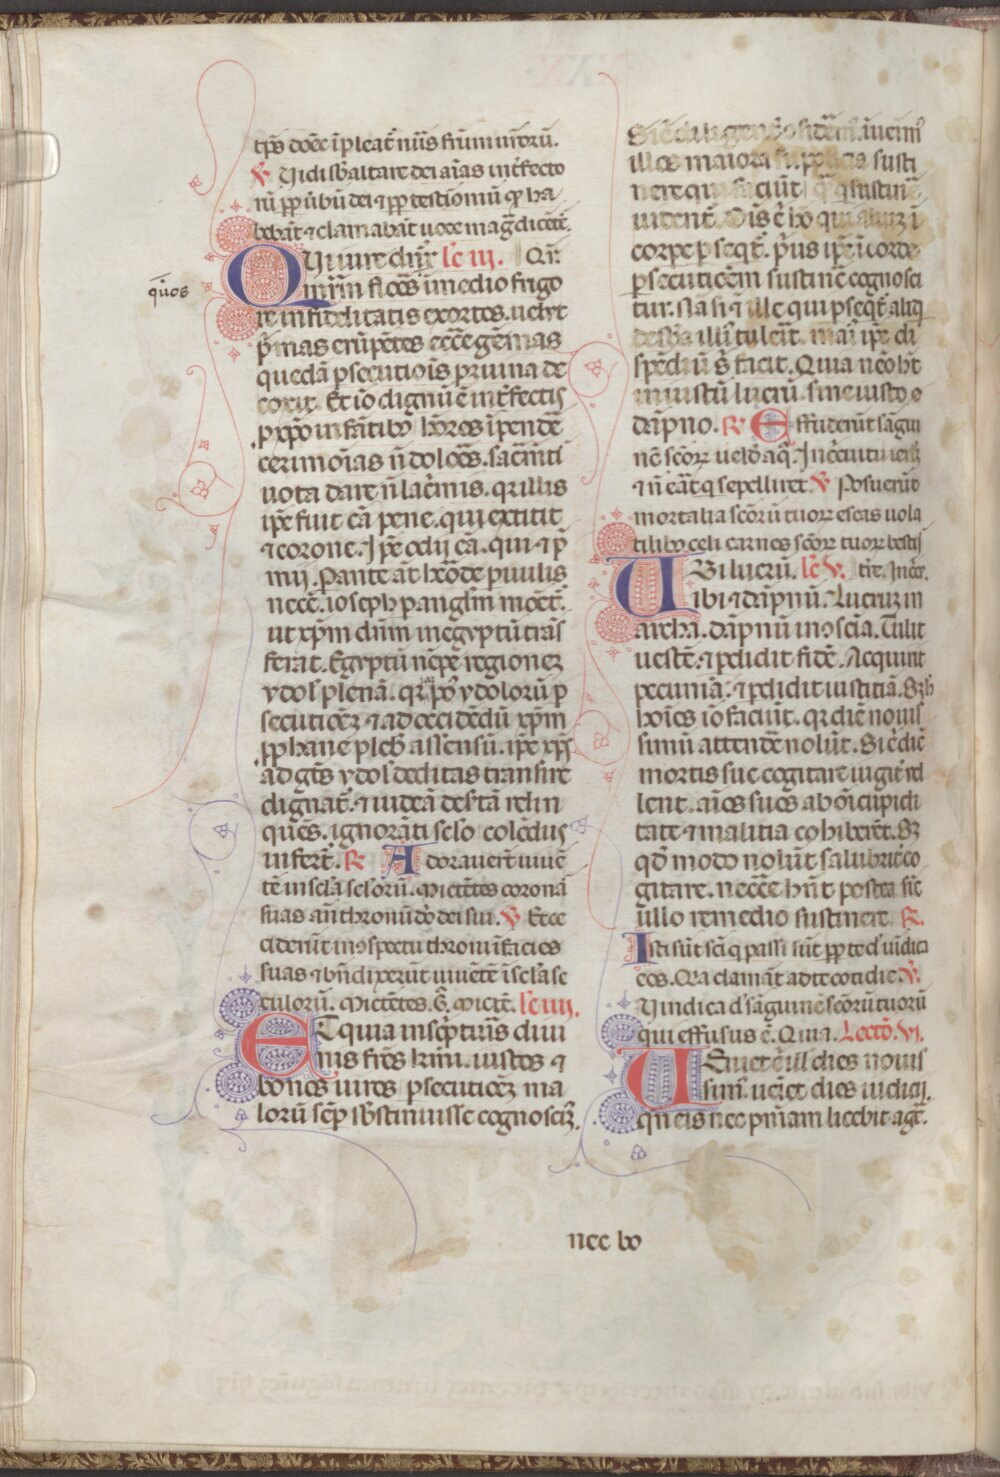 tp̄s donec īpleat̄ nūs fr̄um ur̄oꝝ.
℣ Vidi sb̄ altare dei aīas int̄fecto
rū ꝓp̄ v̄bū dei ⁊ ꝓp̄ testioniū qͦ ha
bebāt ⁊ clamabāt uoce mag̅ dicētē.
Qui iure dn̄r lc̄ iii. Qn̄r
mr̄m flōes ī medio frigo
quos
re infidelitatis exortos. uelut
p̄mas erūpētes ecce gēmas
quedā psecutiōis pruina de
coxit. Et iō dignū ē int̄fectis
p xp̄o infātibꝰ hōres īpendē
cerimoīas ñ dolōes. sacm̄ti
uota dare ñ lac̄mis. qr illis
ip̄e fuit cā pene. qui extitit
⁊ corone. Ip̄e odii cā. qui ⁊ p̄
mii. Pante āt hōde puulis
necē. ioseph p angl̄m monet̄.
ut xp̄m dn̄m in egyptū trās
ferat. Egyptū nēpe regionez
ydol̄ plenā. qr po ydoloꝝ p
secutiōez ⁊ ad occidēdū xp̄m
ꝓphane pleb̄ assensū. ip̄e xp̄s
ad gētes ydol̄ deditas transire
dignat̄. ⁊ iudeā relin
quēs. ignorāti sclo colēdus
infert̄. ℟ Adorauert̄ uiuē
tē in scl̄a scl̄oꝝ. Mictētes corona
suas an̄ thronū dn̄i dei sui. ℣ Et ce
ciderūt in ɔspectu throni ī facies
suas ⁊ bn̄dixerūt uiuētē ī scl̄a se
culoꝝ. Mictētes. G. Mictē. lc̄ iiii.
Et quia in sc̄pturis diui
nis fr̄es kr̄mi. iustos ⁊
bonos uiros psecutiōez ma
loꝝ sēp sb̄stinuisse cognoscz̄.
Sic diligent̄ ɔsidem̄. inueim̄
illos maiora supplicia susti
nere qui faciūt q̄ q sustinē
uident̄. Ois ē hō qui aliuz ī
corpe pseqt̄. p̄us ip̄e ī corde
psecutiōem sustinē cognosci
tur. Nā si ille qui pseqt̄ aliq
de sba illī tulerit. maī ip̄e di
spēdiū s facit. Quia nō hēt
iniustū lucrū sine iusto
dāpno. ℟ Effuderūt sāgui
nē sc̄oꝝ uelō aq̄. In circuitu ierlm
⁊ ñ erat q sepelliret. ℣ Posuerūt
mortalia sc̄oꝝ tuoꝝ escas uola
tilibꝰ celi carnes sc̄oꝝ tuoꝝ bestiis
Ubi lucrū. lc̄ v. tr̄e. In cir.
ibi ⁊ dāpnū. Lucruz in
archa. dāpnū in ɔscia. Tulit
uestē. ⁊ pdidit fidē. Acquirit
pecuniā. ⁊ pdidit iustitiā. Sz h̄
hoīes iō faciūt. qr diē nouis
simū attendē nolūt. Sic diē
mortis sue cogitare iugit̄ uel
lent. aīos suos ab oī cupidi
tate ⁊ malitia cohiberēt. Sz
qd̄ modo nolūt salubrit̄ co
gitare. necce hn̄t postea sīe
ullo remedio sustinere. ℟
Isti sūt sc̄i q passi sūt ꝓp̄ te dn̄e uīdica
eos. Qia clamāt ad te cotidie. ℣
Vindica dn̄e sāguinē sc̄oꝝ tuoꝝ
qui effusus ē. Quia. Lectō. vi.
Ueniet ē ill dies nouis
sim̄. ueiet dies iudicii.
qn̄ eis nec pn̄iam licebit agē.
nec bo